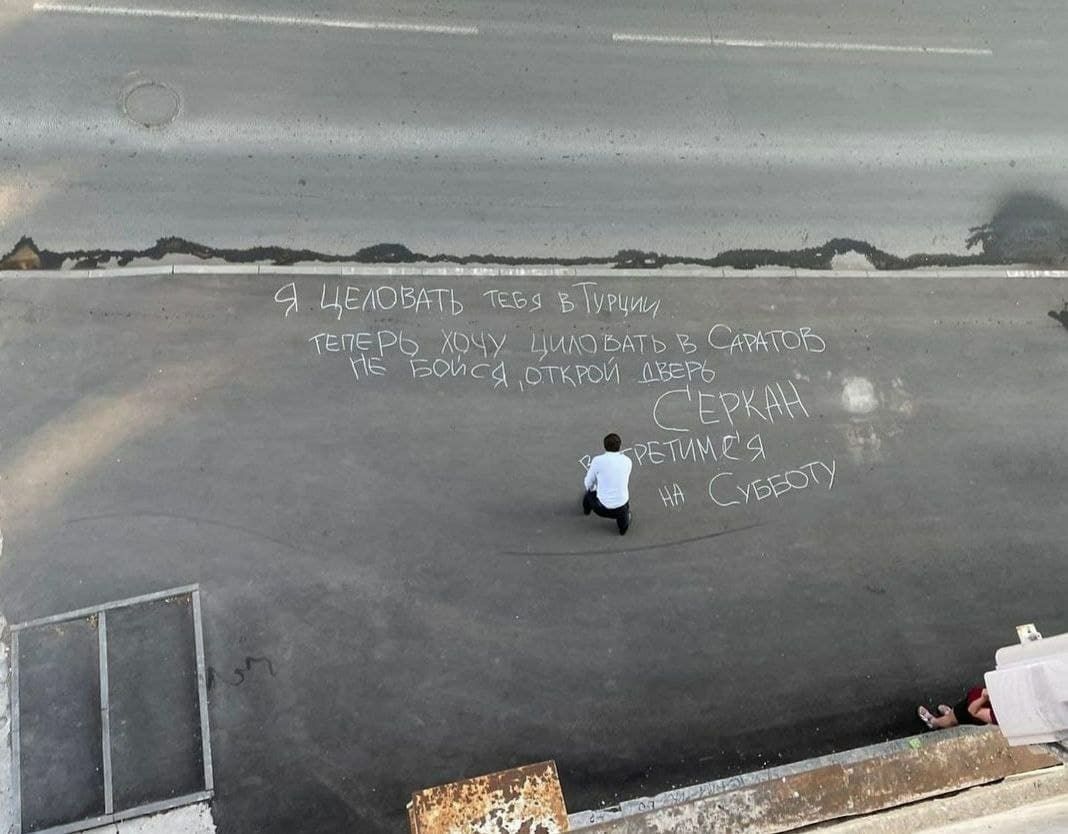 Я ЦЕЛОВАТЬ ТЕБЯ В ТУРЦИИ
ТЕПЕРЬ ХОЧУ ЦИЛОВАТЬ В САРАТОВ
НЕ БОЙСЯ, ОТКРОЙ ДВЕРЬ
СЕРКАН
ВСТРЕТИМСЯ
НА СУББОТУ